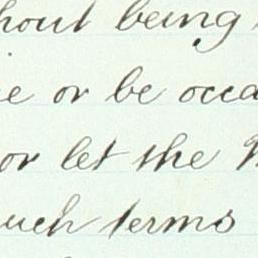 hout being
e or be occa
or let the
uch terms